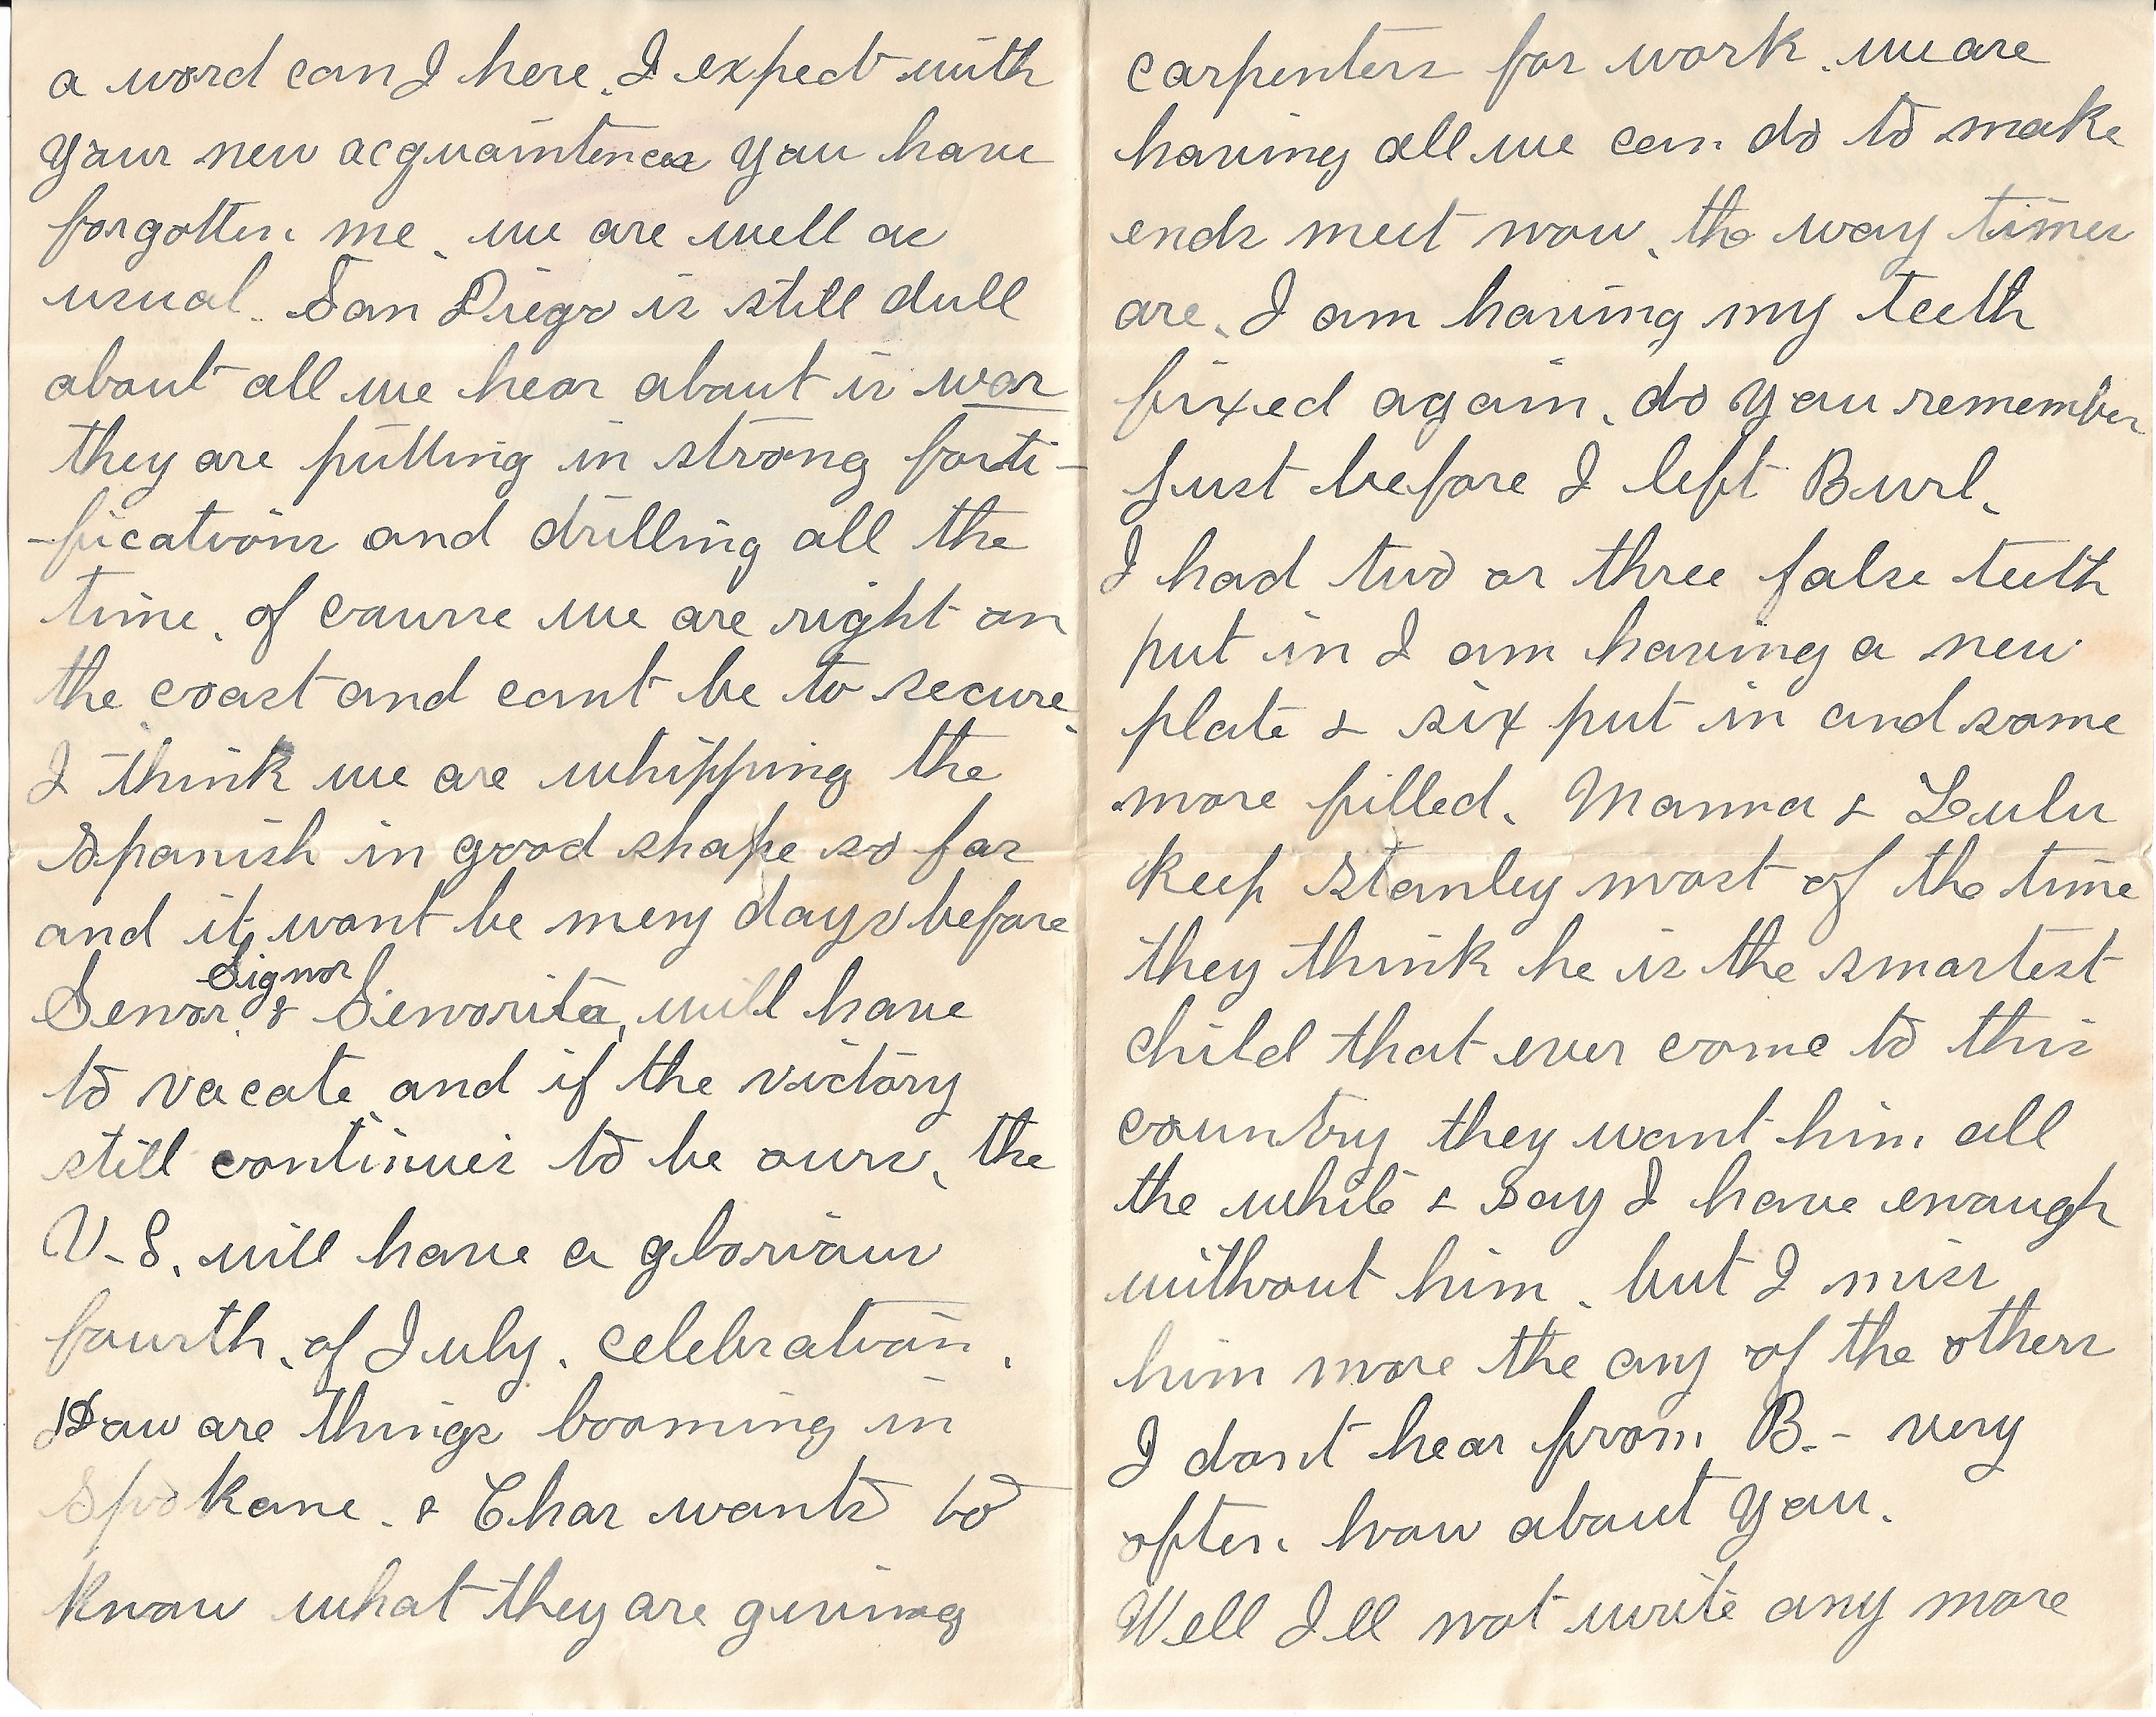 a word can I here. I expect with
your new acquaintences you have
forgotten me. we are well as
usual. San Diego is still dull
about all we hear about is war
they are putting in strong forti-
-fications and drilling all the
time. of course we are right on
the coast and cant be to secure.
I think we are whipping the
Spanish in good shape so far
and it wont be meny days before
Signor
Senor & Senorita, will have
to vacate and if the victory
still continues to be ours, the
U.S. will have a glorious
fourth, of July. celebration.
How are things booming in
Spokane. & Char wants to
know what they are giving
carpenters for work. we are
having all we can do to make
ends meet now, the way times
are. I am having my teeth
fixed again. do you remember
just before I left Burl.
I had two or three false teeth
put in I am having a new
plate & six put in and some
more filled. Mamma & Lulu
keep Stanley most of the time
they think he is the smartest
child that ever come to this
country they want him all
the while & say I have enough
without him. but I miss
him more the any of the others
I dont hear from B.- very
often. how about you.
Well Ill not write any more